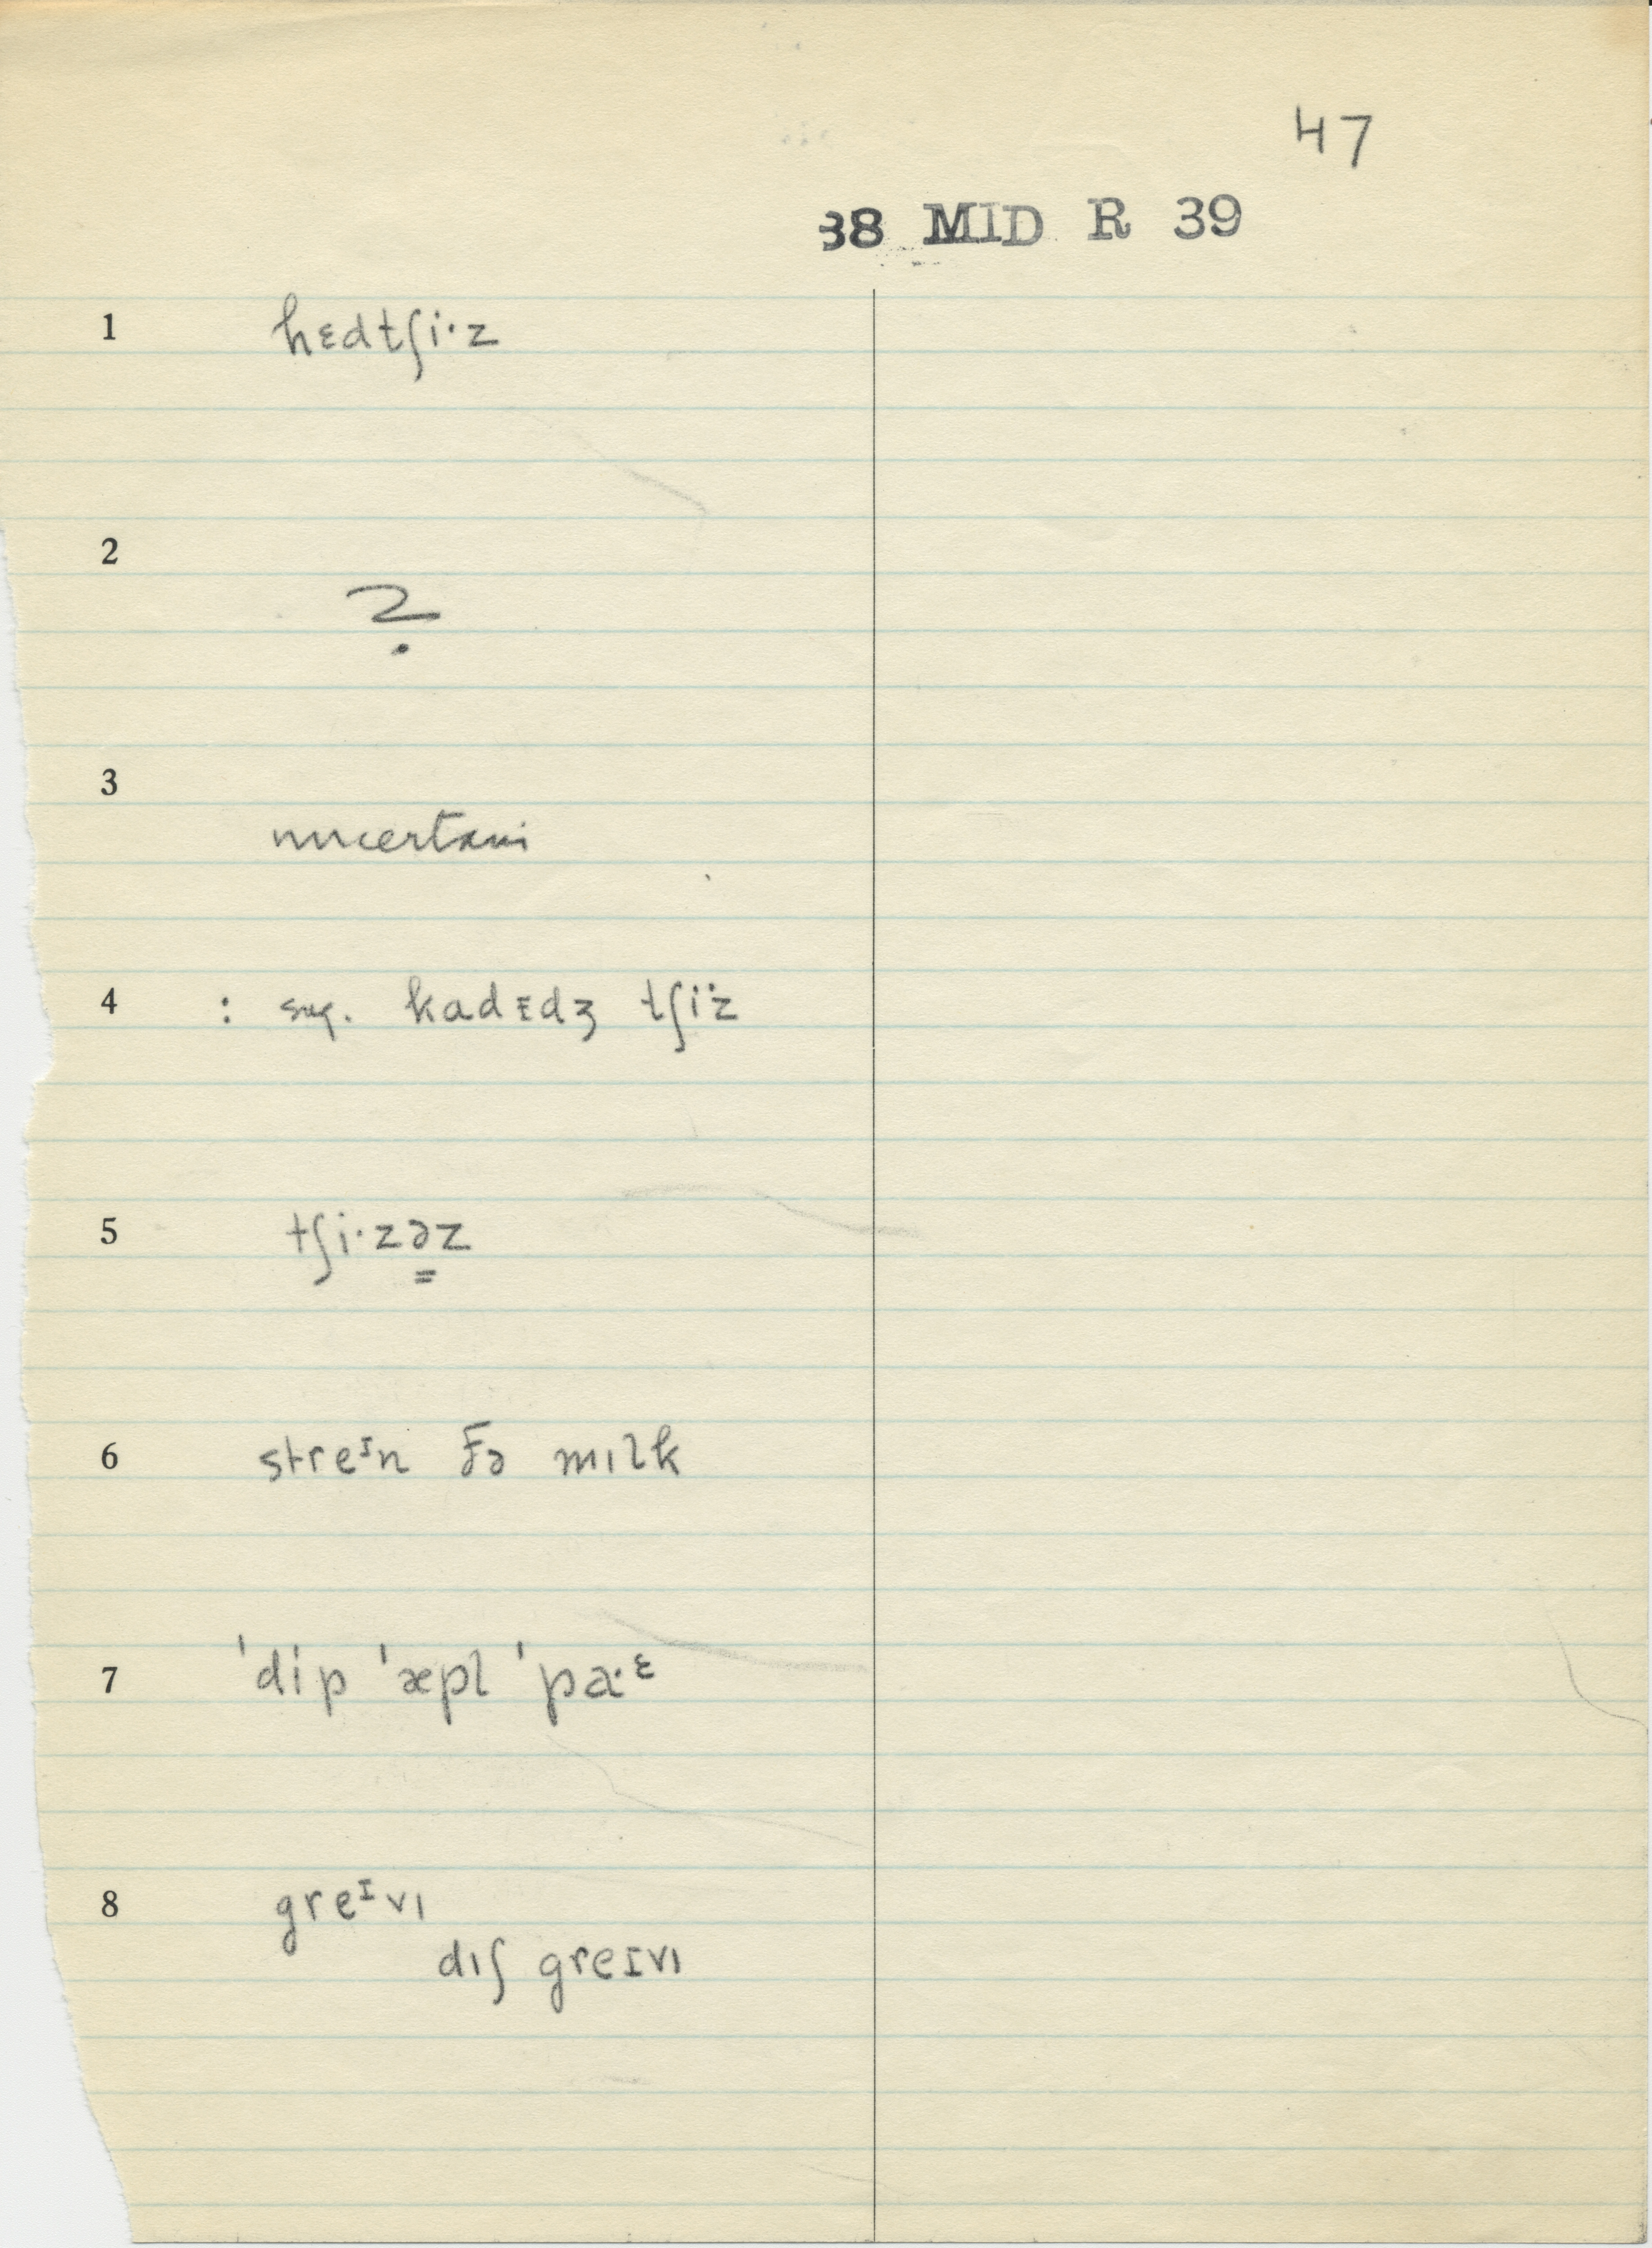 47
38 MID R 39
1 hɛdtʃi·z
2
?
3
uncertain
4 : sug. kadɪdʒ tʃi·z
5 tʃi·zə̳z
6 streᶦn ðə mɪlk
7 ˈdip ˈæpl ˈpa·ᵋ
8 greᶦvɪ
dɪʃ greɪvɪ